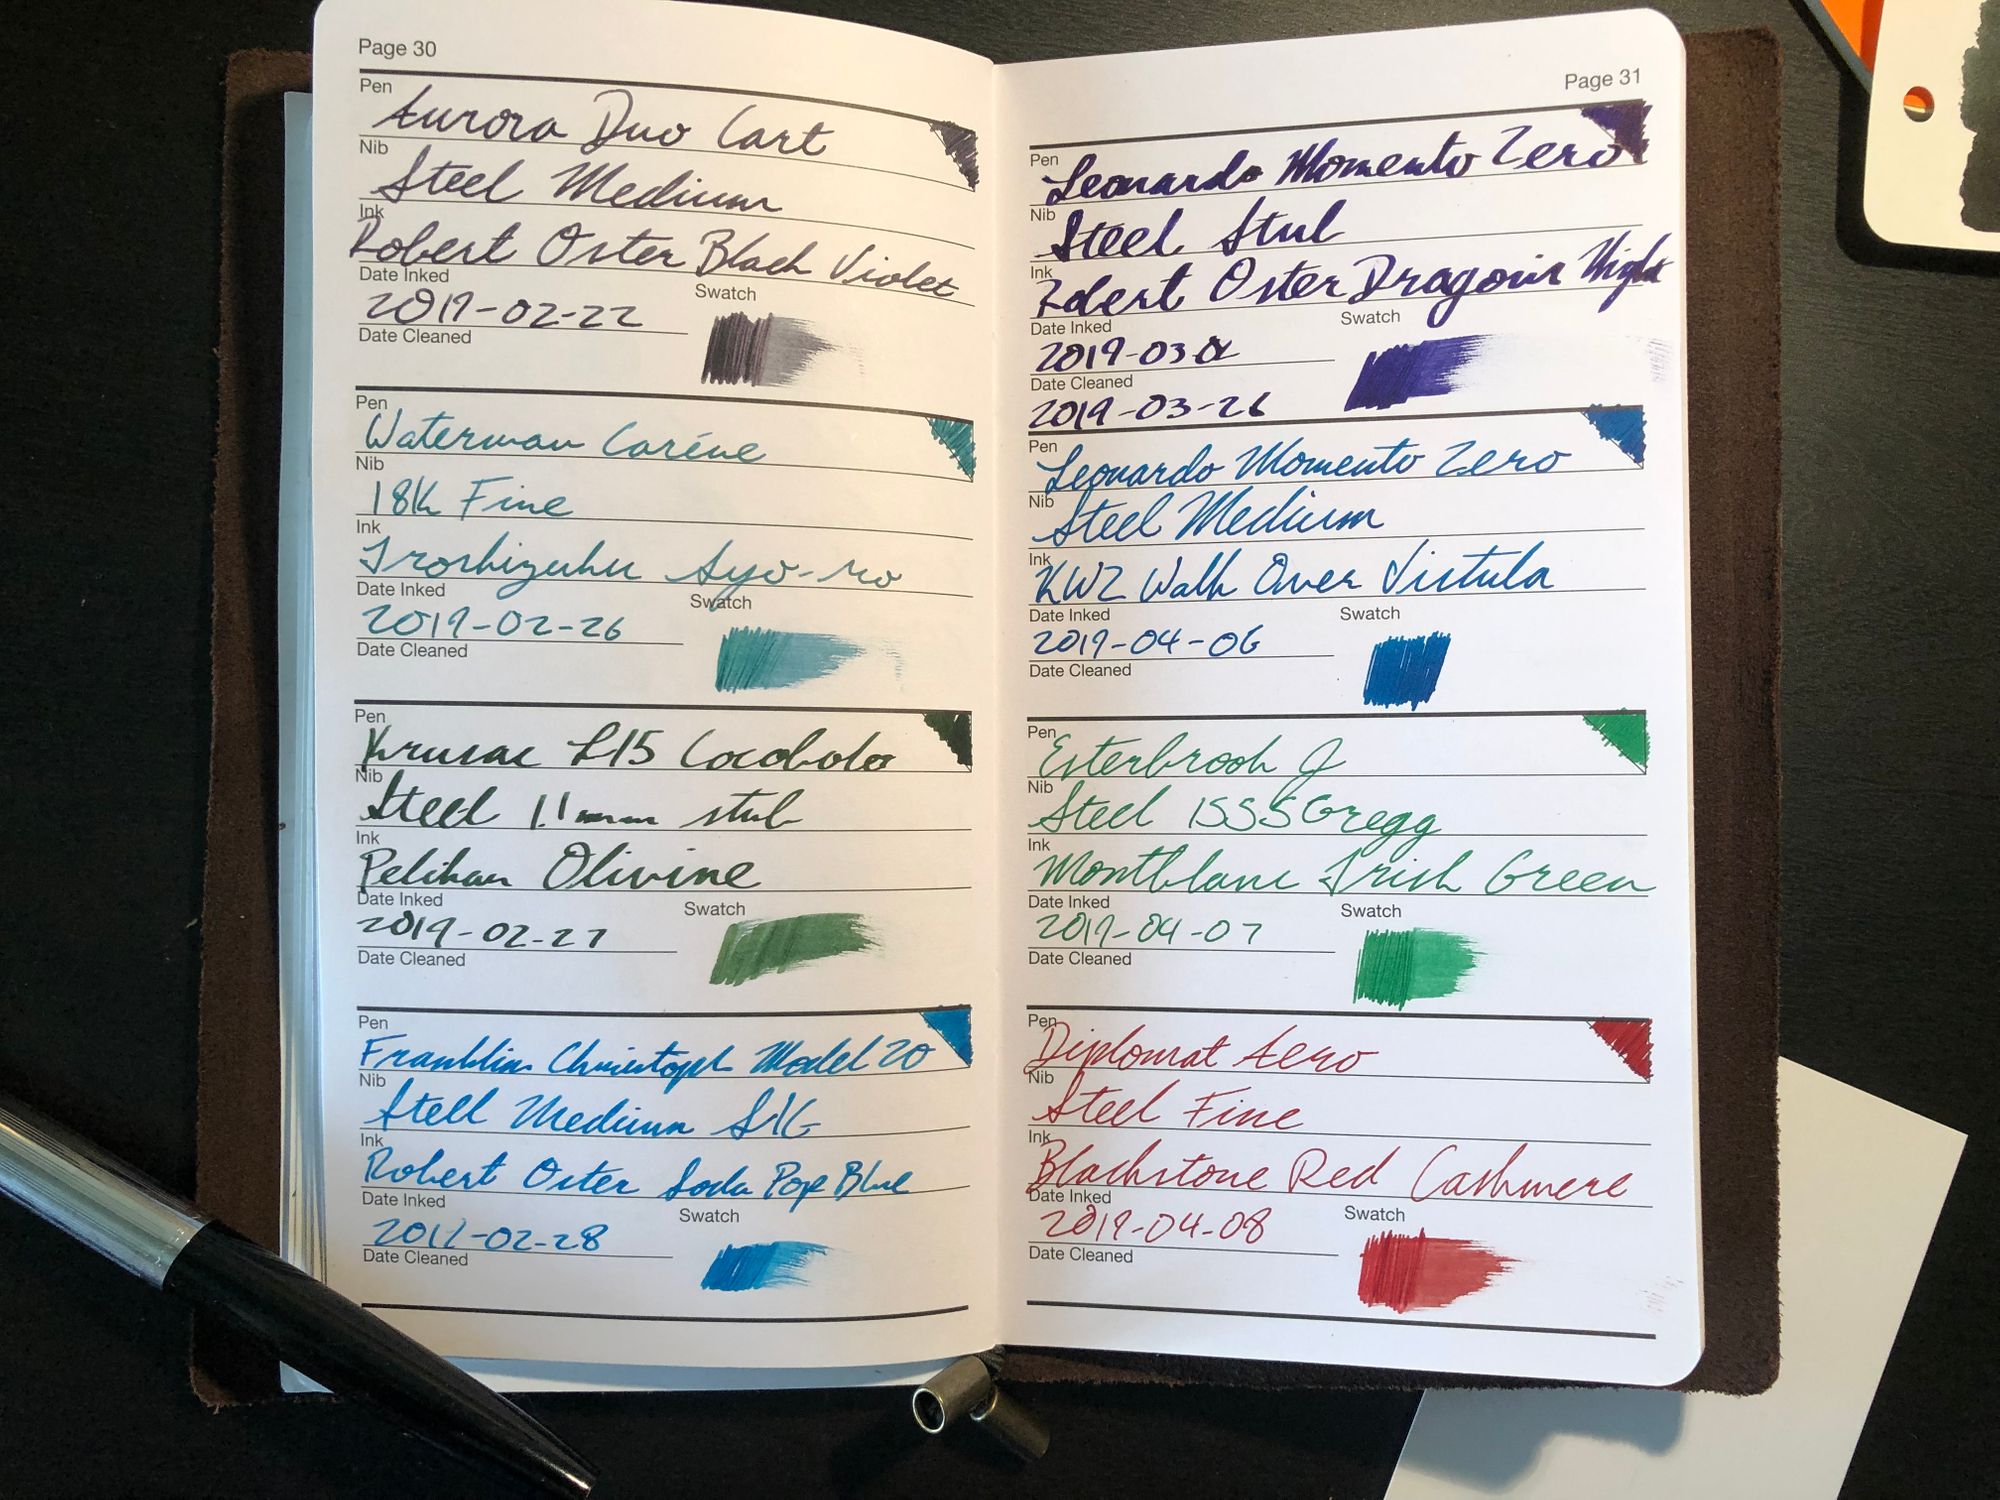 Page 30
Pen
Aurora Duo Cart
Nib
Steel Medium
Ink
Robert Oster Black Violet
Date Inked
2019-02-22
Swatch
Date Cleaned
Pen
Waterman Carène
Nib
18K Fine
Ink
Iroshizuku Syo-ro
Date Inked
2019-02-26
Swatch
Date Cleaned
Pen
L15 Cocobolo
Nib
Steel 1.1mm stub
Ink
Pelikan Olivine
Date Inked
2019-02-27
Swatch
Date Cleaned
Pen
Franklin Christoph Model 20
Nib
Steel Medium SIG
Ink
Robert Oster Soda Pop Blue
Date Inked
2019-02-28
Swatch
Date Cleaned
Page 31
Pen
Leonardo Momento Zero
Nib
Steel Stub
Ink
Robert Oster Dragon's Night
Date Inked
Swatch
Date Cleaned
2019-03-26
Pen
Leonardo Momento Zero
Nib
Steel Medium
Ink
KWZ Walk Over Vistula
Date Inked
2019-04-06
Swatch
Date Cleaned
Pen
Esterbrook J
Nib
Steel 1555 Gregg
Ink
Montblanc Irish Green
Date Inked
2019-04-07
Swatch
Date Cleaned
Pen
Diplomat Aero
Nib
Steel Fine
Ink
Blackstone Red Cashmere
Date Inked
2019-04-08
Swatch
Date Cleaned